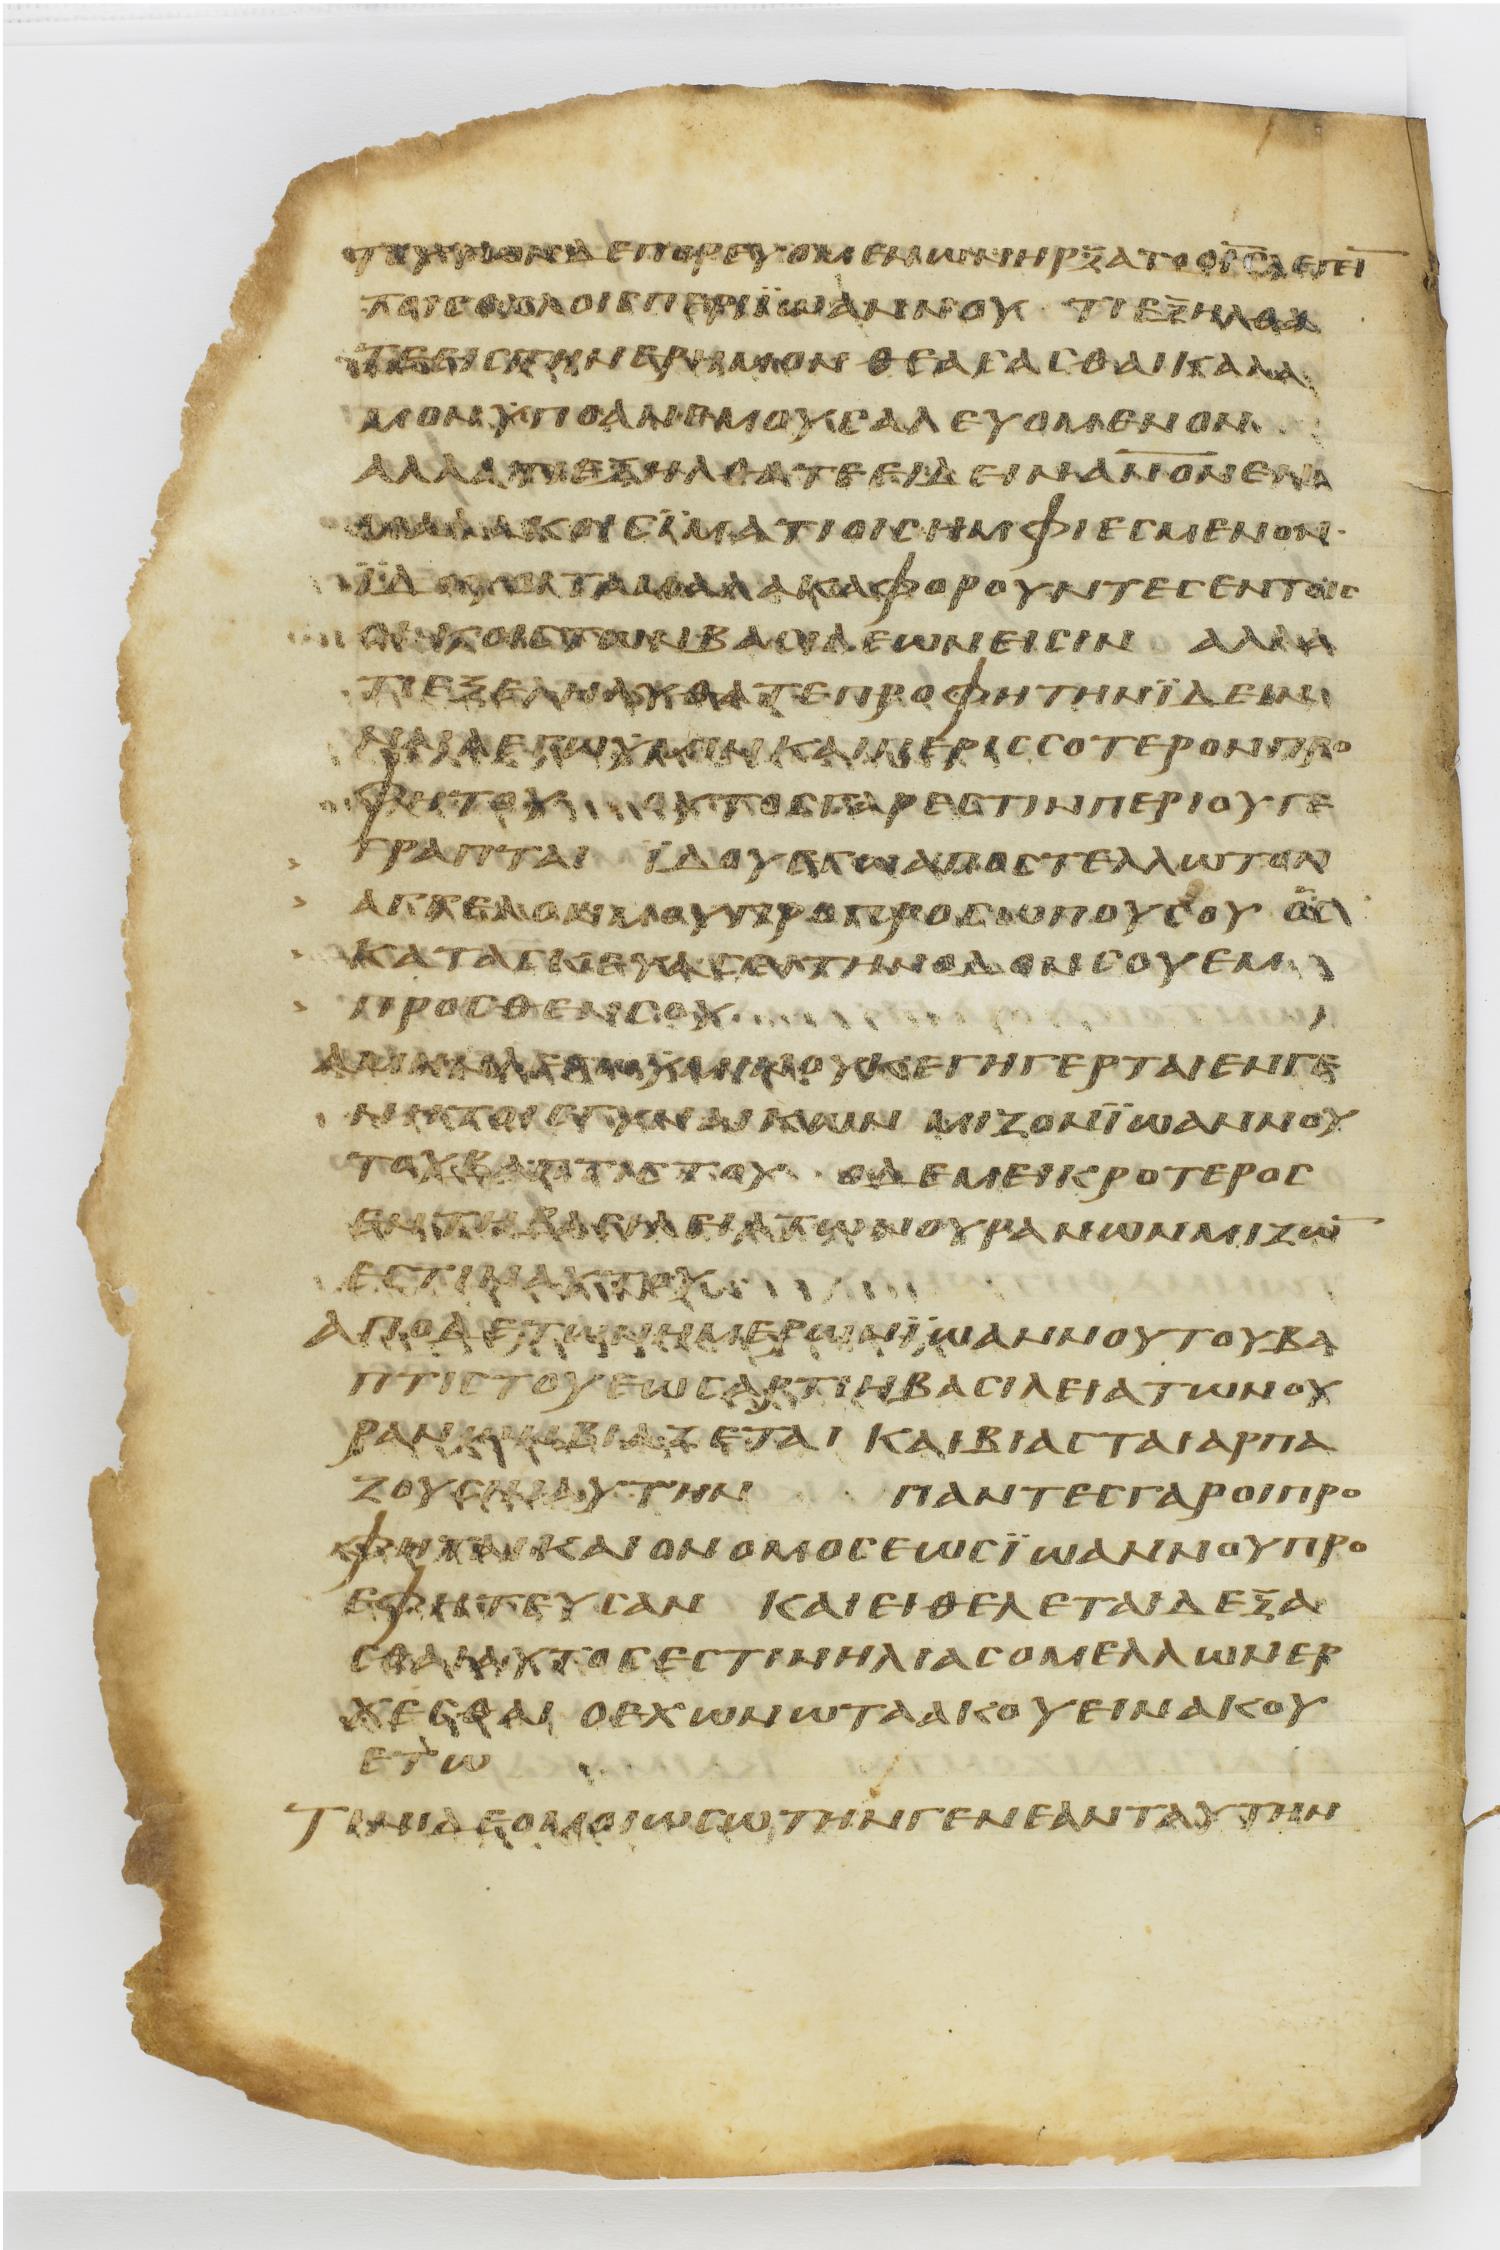 ΤΟΥΤΩΝΔΕΠΟΡΕΥΟΜΕΝΩΝΗΡΞΑΤΟΟΙ̅Ϲ̅ΛΕΓΕΙ̅
ΤΟΙϹΟΧΛΟΙϹΠΕΡΙΪΩΑΝΝΟΥ ΤΙΕΞΗΛΘΑ
ΤΕΕΙϹΤΗΝΕΡΗΜΟΝΘΕΑϹΑϹΘΑΙΚΑΛΑ
ΜΟΝΫΠΟΑΝΕΜΟΥϹΑΛΕΥΟΜΕΝΟΝ
ΑΛΛΑΤΙΕΞΗΛΘΑΤΕΕΙΔΕΙΝΑ̅Ν̅Ο̅Ν̅ΕΝ
ΜΑΛΑΚΟΙϹΪΜΑΤΙΟΙϹΗΜΦΙΕϹΜΕΝΟΝ·
ΪΔΟΥΟΙΤΑΜΑΛΑΚΑΦΟΡΟΥΝΤΕϹΕΝΤΟΙϹ
ΟΙΚΟΙϹΤΩΝΒΑϹΙΛΕΩΝΕΙϹΙΝ ΑΛΛΑ
ΤΙΕΞΕΛΗΛΥΘΑΤΕΠΡΟΦΗΤΗΝΪΔΕΙΝ
ΝΑΙΛΕΓΩΫΜΙΝΚΑΙΠΕΡΙϹϹΟΤΕΡΟΝΠΡΟ
ΦΗΤΟΥ ΟΥΤΟϹΓΑΡΕϹΤΙΝΠΕΡΙΟΥΓΕ
ΓΡΑΠΤΑΙ ΪΔΟΥΕΓΩΑΠΟϹΤΕΛΛΩΤΟΝ
ΑΓΓΕΛΟΝΜΟΥΠΡΟΠΡΟϹΩΠΟΥϹΟΥ ΟϹ
ΚΑΤΑϹΚΕΥΑϹΕΙΤΗΝΟΔΟΝϹΟΥΕΜ
ΠΡΟϹΘΕΝϹΟΥ
ΑΜΗΝΛΕΓΩΫΜΙΝΟΥΚΕΓΗΓΕΡΤΑΙΕΝΓΕ
ΝΗΤΟΙϹΓΥΝΑΙΚΩΝ ΜΙΖΟΝΪΩΑΝΝΟΥ
ΤΟΥΒΑΠΤΙϹΤΟΥ ΟΔΕΜΕΙΚΡΟΤΕΡΟϹ
ΕΝΤΗΒΑϹΙΛΕΙΑΤΩΝΟΥΡΑΝΩΝΜΙΖΩ̅
ΕϹΤΙΝΑΥΤΟΥ
ΑΠΟΔΕΤΩΝΗΜΕΡΩΝΪΩΑΝΝΟΥΤΟΥΒΑ
ΠΤΙϹΤΟΥΕΩϹΑΡΤΙΗΒΑϹΙΛΕΙΑΤΩΝΟΥ
ΡΑΝΩΝΒΙΑΖΕΤΑΙ ΚΑΙΒΙΑϹΤΑΙΑΡΠΑ
ΖΟΥϹΙΝΑΥΤΗΝ ΠΑΝΤΕϹΓΑΡΟΙΠΡΟ
ΦΗΤΑΙΚΑΙΟΝΟΜΟϹΕΩϹΪΩΑΝΝΟΥΠΡΟ
ΕΦΗΤΕΥϹΑΝ ΚΑΙΕΙΘΕΛΕΤΑΙΔΕΞΑ
ϹΘΑΙΑΥΤΟϹΕϹΤΙΝΗΛΙΑϹΟΜΕΛΛΩΝΕΡ
ΧΕϹΘΑΙ ΟΕΧΩΝΩΤΑΑΚΟΥΕΙΝΑΚΟΥ
ΕΤΩ
ΤΙΝΙΔΕΟΜΟΙΩϹΩΤΗΝΓΕΝΕΑΝΤΑΥΤΗΝ